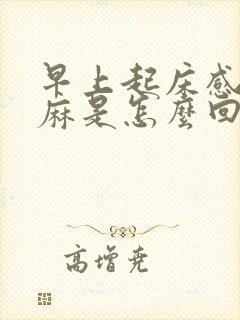 早上起床感
麻是怎麼回
高增堯